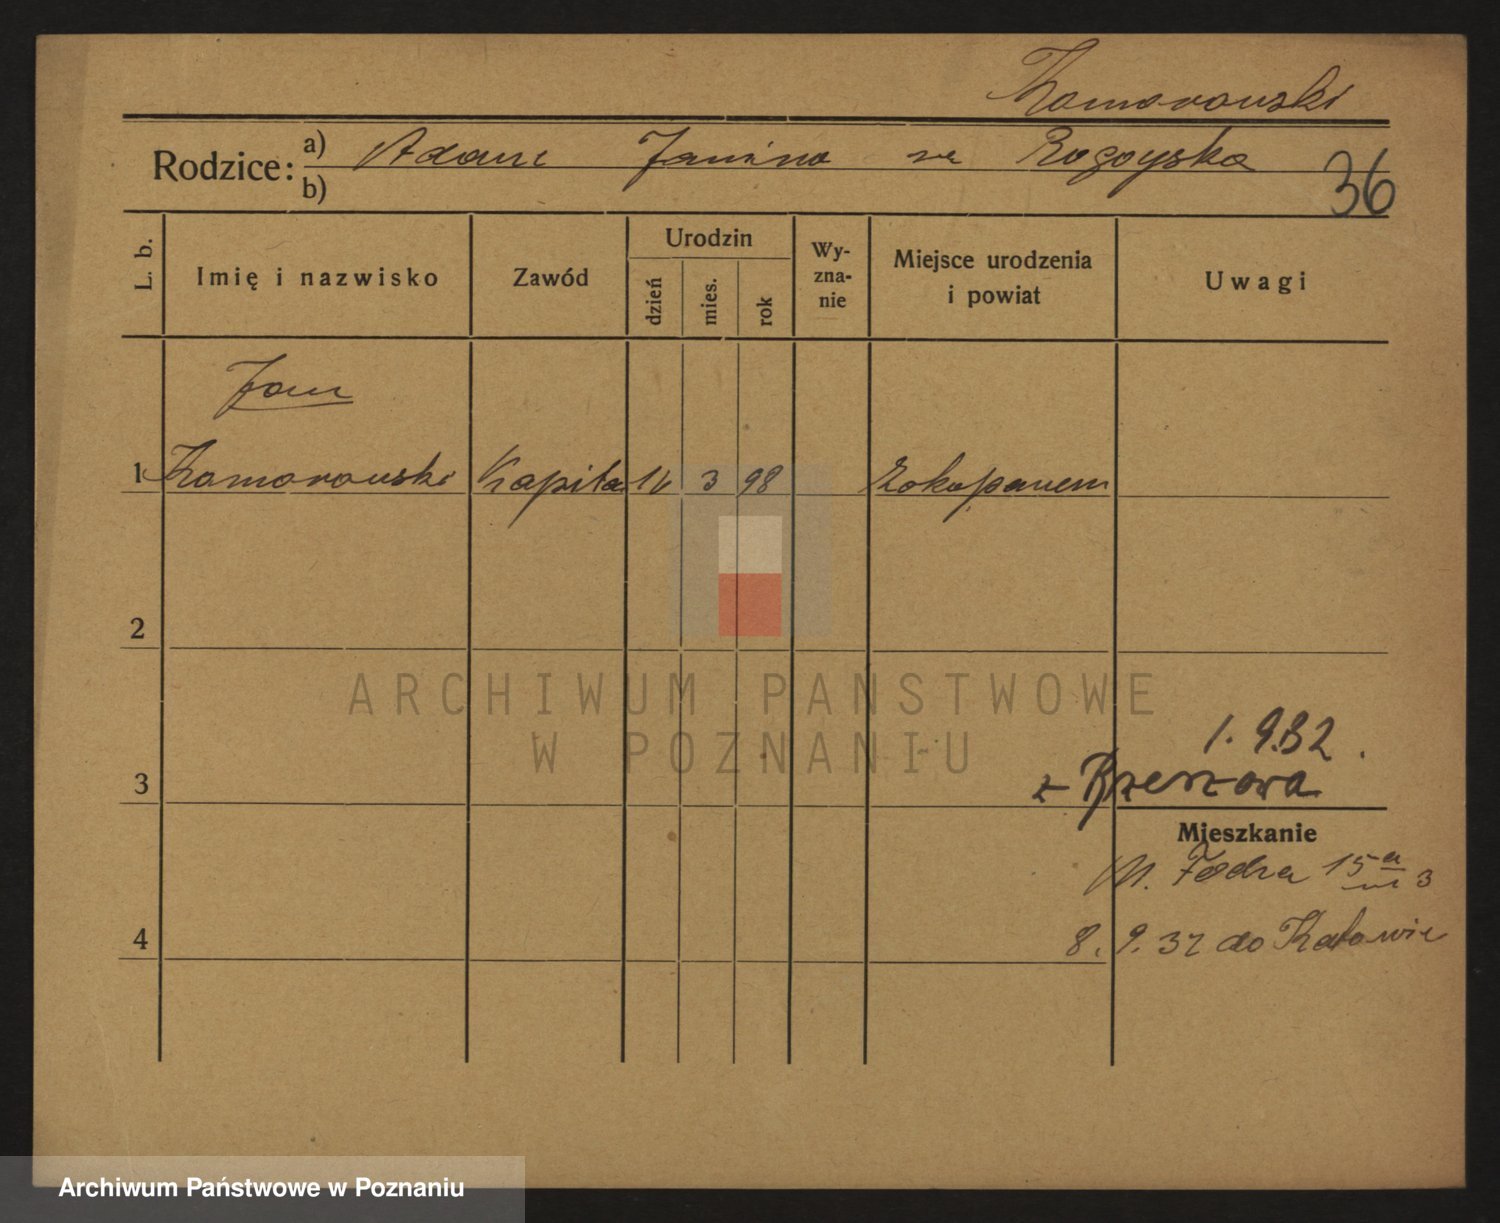 Komorowski
Rodzice: a) Adam Janina Rogoyska
b)
36
L. b. Imię i nazwisko Zawód Urodzin dzień mies. rok Wy-zna-nie Miejsce urodzenia i powiat Uwagi
Jan
1 Komorowski Kapitan 3 98 Zakopanem
2
ARCHIWUM PAŃSTWOWE
W POZNANIU
1. 9.32.
3 z Rzeszowa
Mieszkanie
15a m 3
4 8. 9. 32 do Katowic
Archiwum Państwowe w Poznaniu